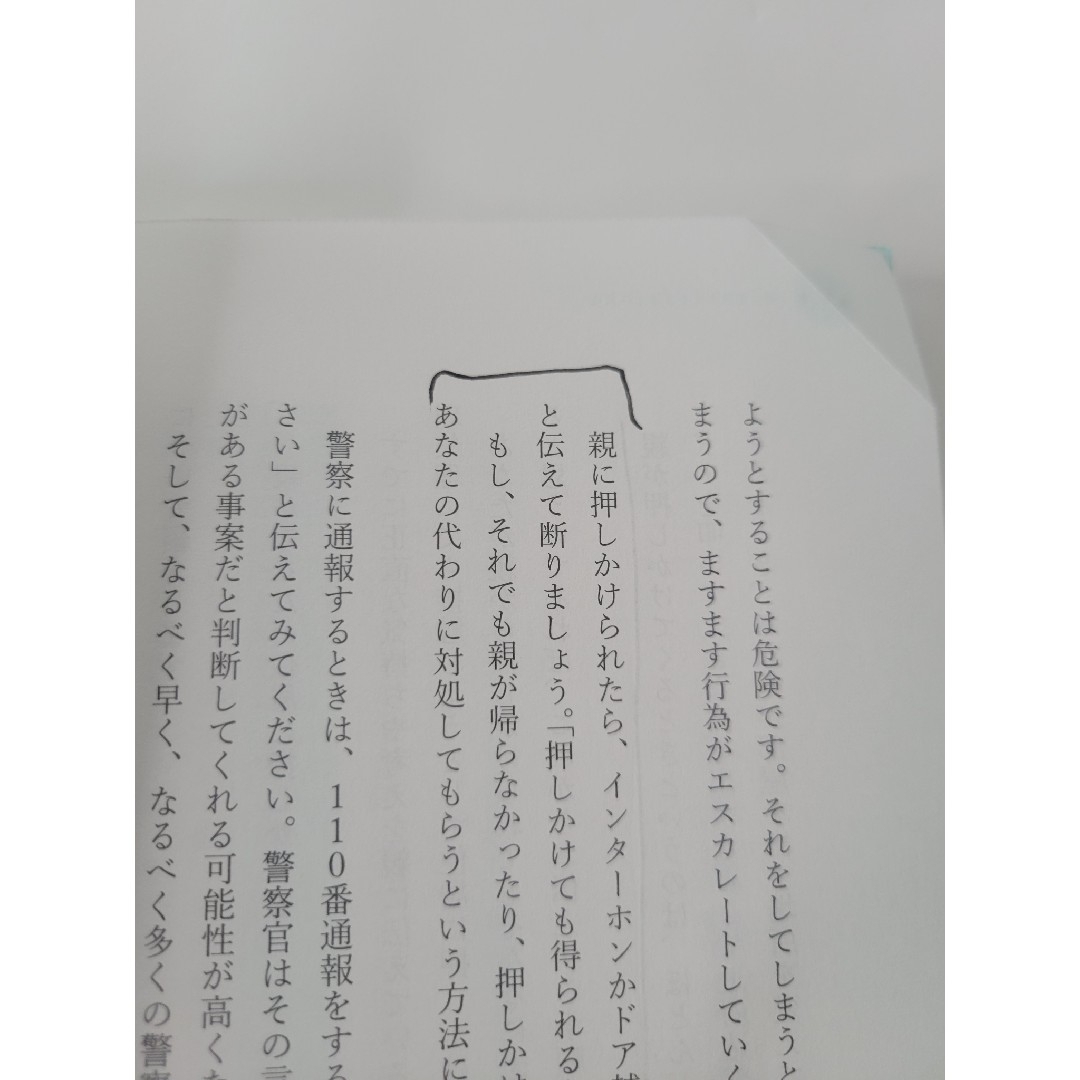 ようとすることは危険です。それをしてしまうと
まうので、ますます行為がエスカレートしていく
親に押しかけられたら、インターホンかドア
と伝えて断りましょう。「押しかけても得られる
もし、それでも親が帰らなかったり、押しか
あなたの代わりに対処してもらうという方法に
警察に通報するときは、110番通報をする
さい」と伝えてみてください。警察官はその言
がある事案だと判断してくれる可能性が高く
そして、なるべく早く、なるべく多くの警察